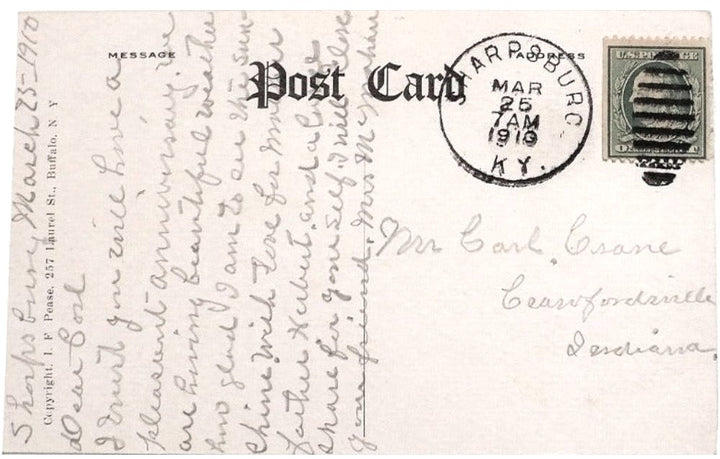 MESSAGE
Post Card
ADDRESS
SHARPSBURG
MAR
25
7 AM
1910
KY.
U.S. POSTAGE
Copyright. I. F Pease, 257 Laurel St., Buffalo, N Y
Sharpsburg March 25-1910
Dear Carl
I trust you will have a
pleasant anniversary. We
are having beautiful weather
how glad I am to see the sun-
shine. With love for mother
father Herbert, and a large
share for your self, I will close
your friend, Mrs
Mr Carl. Crane
Crawfordsville
Indiana.